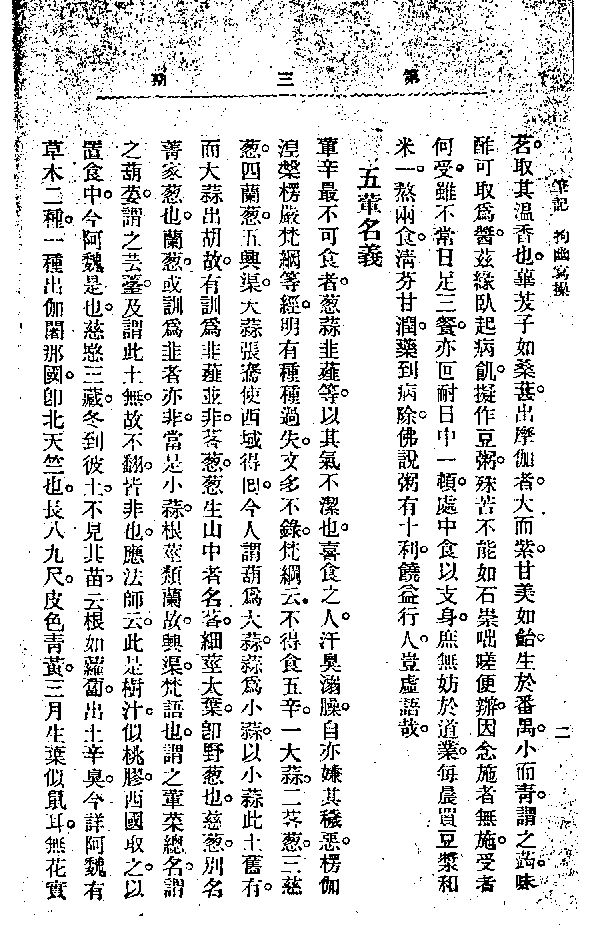 第三期
筆記 拘幽寫操
二
茗。取其溫香也。蓽茇子如桑葚。出摩伽者。大而紫。甘美如飴。生於番禺。小而青。謂之蒟。味
酢可取爲醬。茲緣臥起病飢。擬作豆粥。殊苦不能如石崇咄嗟便辦。因念施者無施。受者
何受。雖不常日足三餐。亦叵耐日中一頓。處中食以支身。庶無妨於道業。每晨買豆漿和
米一熬兩食。清芬甘潤。藥到病除。佛說粥有十利。饒益行人。豈虛語哉。
五葷名義
葷辛最不可食者。葱蒜韭薤等。以其氣不潔也。喜食之人。汗臭溺臊。自亦嫌其穢惡。楞伽
湼槃楞嚴梵綱等經。明有種種過失。文多不錄。梵綱云。不得食五辛。一大蒜。二茖葱。三慈
葱。四蘭葱。五興渠。大蒜張騫使西域得回。今人謂葫爲大蒜。蒜爲小蒜。以小蒜此土舊有。
而大蒜出胡。故有訓爲韭薤並非。茖葱葱生山中者名茖。細莖大葉。卽野葱也。慈葱別名
菁家葱也。蘭葱或訓爲韭者亦非。當是小蒜。根莖類蘭故。興渠梵語也。謂之葷菜總名。謂
之葫荽。謂之芸薹。及謂此土無。故不翻。皆非也。應法師云。此是樹汁。似桃膠。西國取之。以
置食中。今阿魏是也。慈愍三藏。冬到彼土。不見其苗。云根如蘿蔔。出土辛臭。今詳阿魏有
草木二種。一種出伽闍那國。卽北天竺也。長八九尺。皮色青黃。三月生葉似鼠耳。無花實